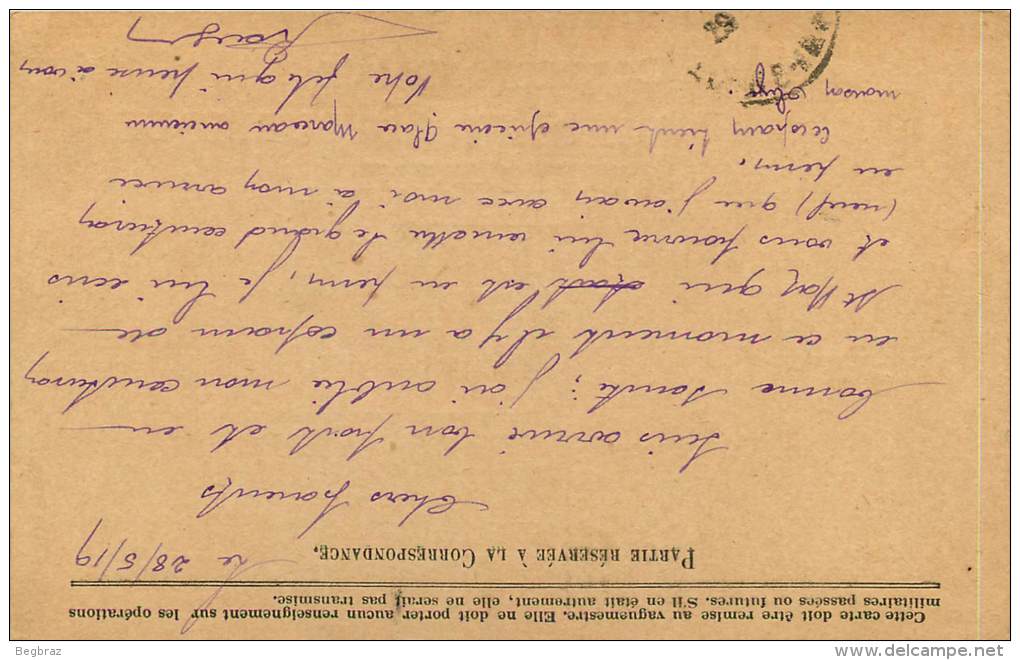 Cette carte doit être remise au vaguemestre. Elle ne doit porter aucun renseignement sur les opérations
militaires passées ou futures. S'il en était autrement, elle ne serait pas transmise.
PARTIE RÉSERVÉE A LA CORRESPONDANCE.
Le 28/5/19
Chers parents
Suis arrivé bon port et en
bonne santé ; j'ai oublié mon ceinturon
en ce moment il y a un copain de
St Naz qui était est en perm, je lui écris
et vous pourrez lui remettre le grand ceinturon
(neuf) que j'avais avec moi à mon arrivée
en perm.
Ce copain tient une épicerie place Marceau ancienne
maison
Votre fils qui pense à vous
Begbraz
delcampe.net